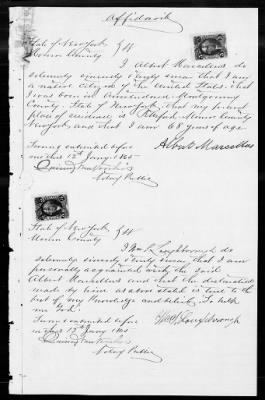 Affidavit
State of New York
Monroe County } SS
I Albert Marsellus do
solemnly sincerely & truly swear that I am
a native citizen of the United States, that
I was born in Montgomery
County, State of New York, that my present
place of residence is Pittsford Monroe County
New York and that I am 68 years of age
Albert Marsellus
Sworn & subscribed before
me this 12th Jany. 1865
Notary Public
State of New York
Monroe County } SS
I Wm. R. Loughborough do
solemnly sincerely & truly swear that I am
personally acquainted with the said
Albert Marsellus and that the declaration
made by him as above stated is true to the
best of my knowledge and belief, So help
me God.
Sworn & subscribed before
me this 12th Jany 1865
Notary Public